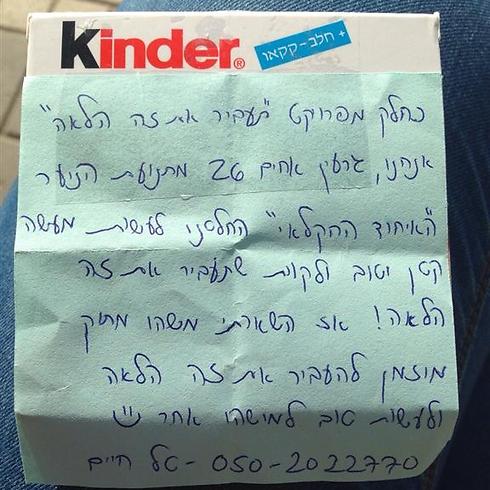 Kinder®
+ חלב-קקאו
כחלק מפרויקט "תעביר את זה הלאה"
אנחנו, גרעין אחים 26 מתנועת הנוער
"האיחוד החקלאי" החלטנו לעשות מעשה
קטן וטוב ולקוות שתעביר את זה
הלאה! אז השארתי משהו מתוק
מוזמן להעביר את זה הלאה
ולעשות טוב למישהו אחר
טל חיים - 050-2022770